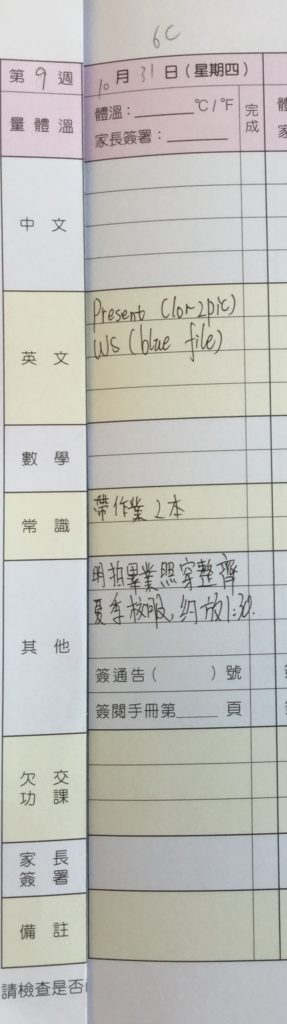 6C
第 9 週
10 月 31 日 (星期四)
量體溫
體溫：______ °C / °F
家長簽署：______
完成
中 文
英 文
Present (1or2pic)
WS (blue file)
數 學
常 識
帶作業2本
其 他
明拍畢業照穿整齊
夏季校服,約放1:30.
簽通告 (      ) 號
簽閱手冊第____ 頁
欠 交
功 課
家 長
簽 署
備 註
請檢查是否